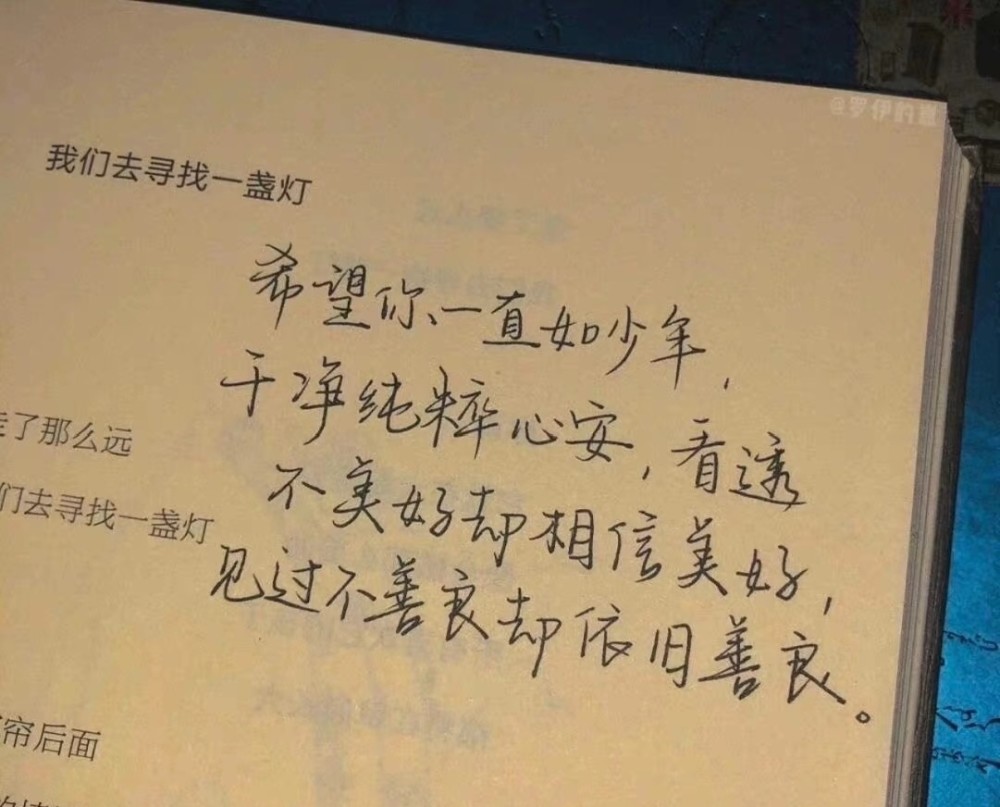 @罗伊的
我们去寻找一盏灯
希望你一直如少年，
干净纯粹心安，看透
不美好却相信美好，
见过不善良却依旧善良。
了那么远
们去寻找一盏灯
帘后面